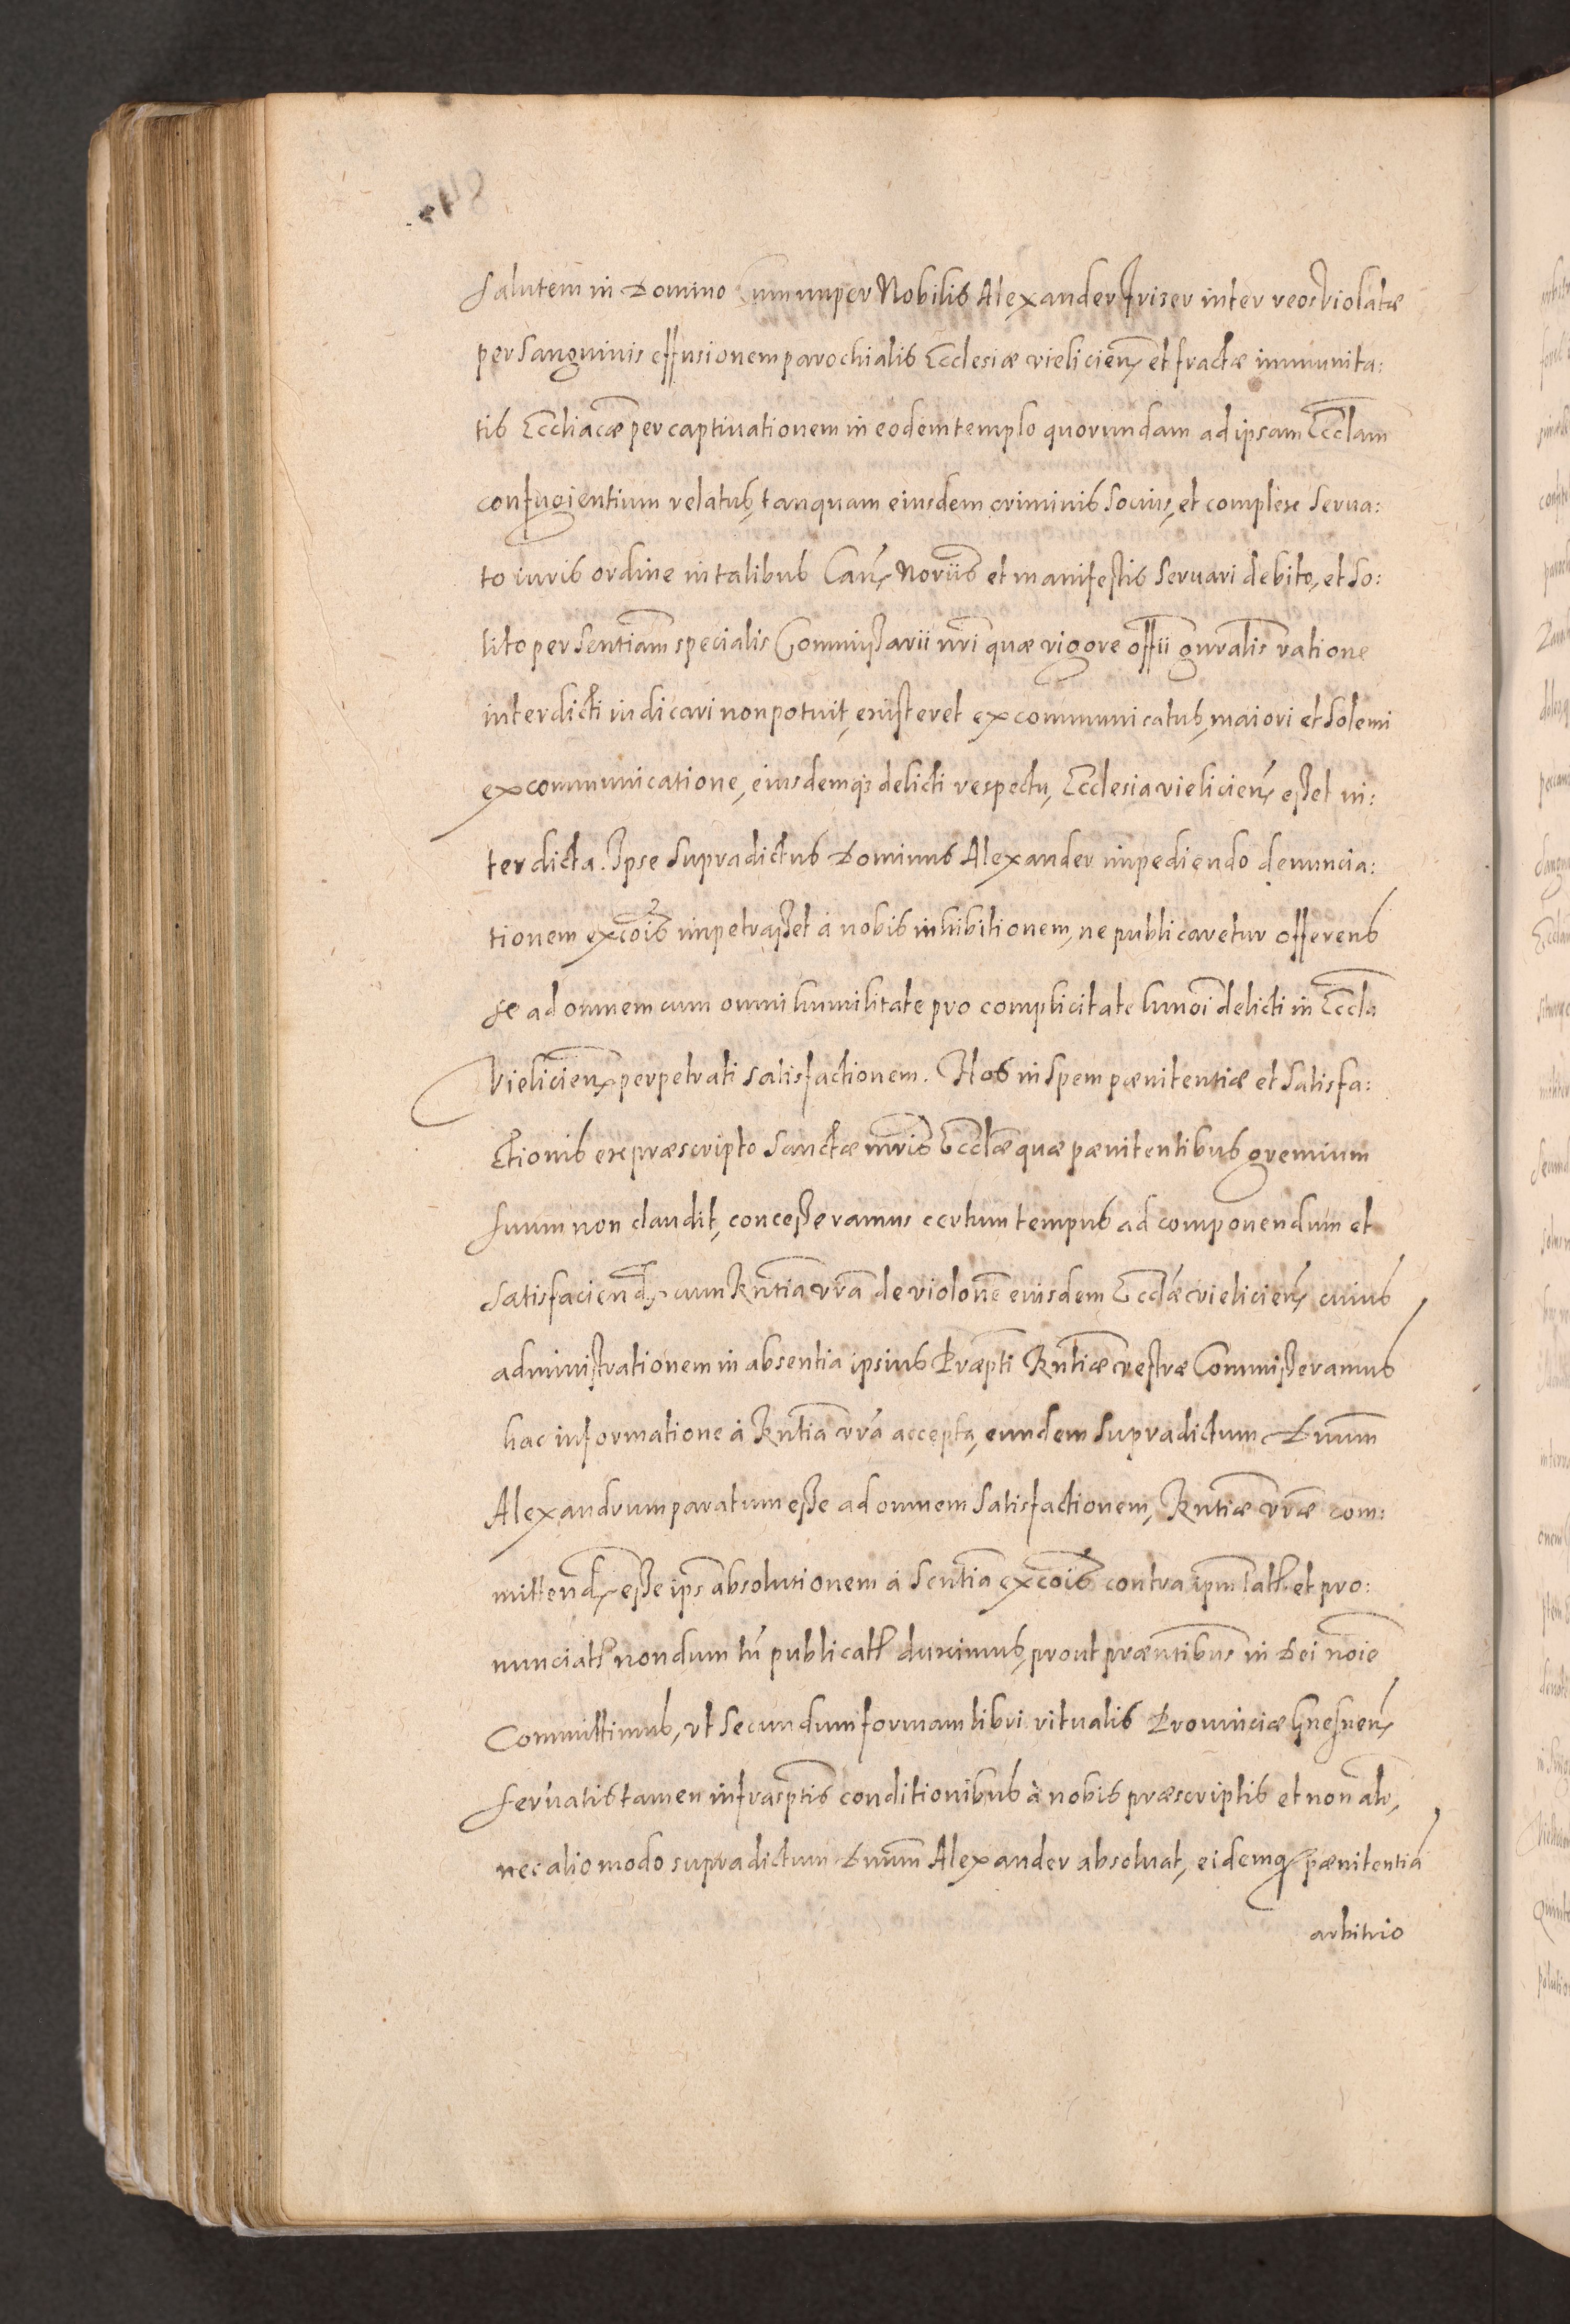 Salutem in Domino Cum nuper Nobilis Alexander Frizer inter reos violatæ
per Sanguinis effusionem parochialis Ecclesiæ vielicien̄ et fractæ immunita:
tis Eccliacæ per captiuationem in eodem templo quorundam ad ipsam Ecclam
confugientium relatus, tanquam eiusdem criminis Socius, et complex Serua:
to iuris ordine in talibus Caus̄ Noriis et manifestis Seruari debito, et So:
lito per Sentiam specialis Commissarii nr̄i quæ vigore offii gnralis ratione
interdicti iudicari non potuit, existeret excommunicatus, maiori et Solemi
excommunicatione, eiusdemq; delicti respectu, Ecclesia vielicien̄ esset in:
terdicta. Ipse Supradictus Dominus Alexander impediendo denuncia:
tionem excōis impetrasset à nobis inhibitionem, ne publicaretur offerens
se ad omnem cum omni humilitate pro complicitate hmōi delicti in Eccla
Vielicien̄ perpetrati satisfactionem. Nos in Spem pænitentiæ et Satisfa:
ctionis ex præscripto Sanctæ mr̄is Ecclæ quæ pænitentibus gremium
suum non claudit, concesseramus certum tempus ad componendum et
Satisfaciend̄ cum Rntia vra de violone eiusdem Ecclæ vielicien̄ cuius
administrationem in absentia ipsius Præpti Rntiæ vestræ Commisseramus
hac informatione à Rntia vrā accepta, eundem Supradictum Dnum
Alexandrum paratum esse ad omnem Satisfactionem, Rntiæ vræ com:
mittend̄ esse ips̄ absolutionem à Sentia excōis contra ipm lat̄ et pro:
nunciat̄ nondum tn̄ publicat̄ duximus, prout præntibus in Dei noīe
Committimus, vt Secundum formam libri ritualis Prouinciæ Gnesnen̄
seruatis tamen infrasptis conditionibus à nobis præscriptis et non alr̄,
nec alio modo supradictum Dnum Alexander absoluat, eidemq; pænitentiā
arbitrio